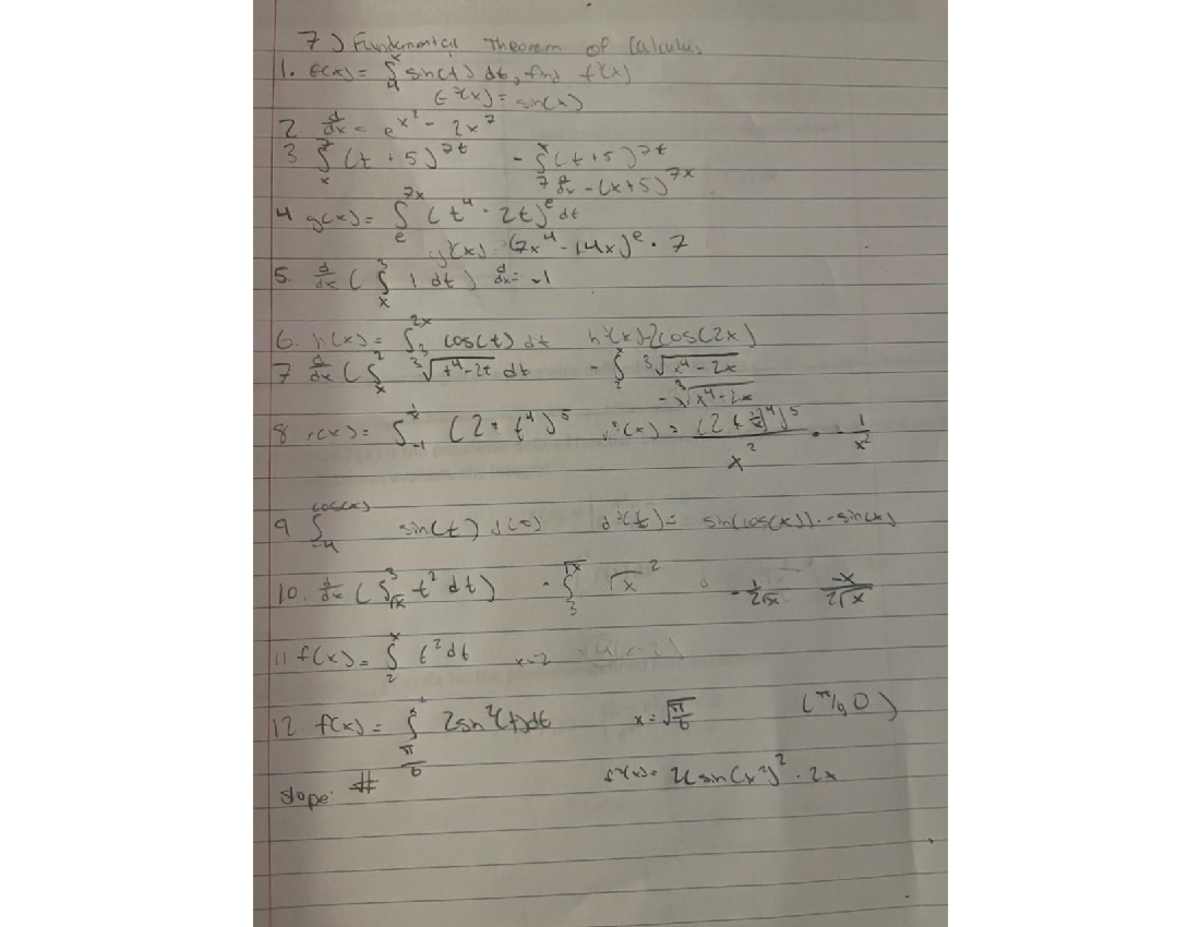 7) Fundemental Theorem of Calculus
1. f(x) = ∫₄ˣ sin(t) dt, find f'(x)
f'(x) = sin(x)
2 d/dx = e^x² - 2x⁷
3 ∫ₓ⁷ (t + 5)^7t - ∫₇ˣ (t+5)^7t
d/dx - (x+5)^7x
4 g(x) = ∫ₑ^7x (t⁴ - 2t)^e dt
g'(x) (7x⁴ - 14x)^e · 7
5. d/dx (∫ₓ³ 1 dt) d/dx = -1
6. h(x) = ∫₃^2x cos(t) dt h'(x) = 2cos(2x)
7 d/dx (∫ₓ² ³√(t⁴-2t) dt - ∫₂ˣ ³√(x⁴-2x)
- ³√(x⁴-2x)
8 r(x) = ∫₋₁^(1/x) (2+t⁴)⁵ r'(x) = (2+(1/x)⁴)⁵ / x² · - 1/x²
9 ∫₋₄^cos(x) sin(t) d(t) d'(t) = sin(cos(x)) · -sin(x)
10. d/dx (∫_√x ³ t² dt) - ∫₃^√x √x² - 1/2√x -x/2√x
11 f(x) = ∫₂ˣ t² dt x=2
12. f(x) = ∫_(π/6)^x² 2sin²(t)dt x = √(π/6) (π/6, 0)
slope: # f'(x) = 2(sin(x²))² · 2x